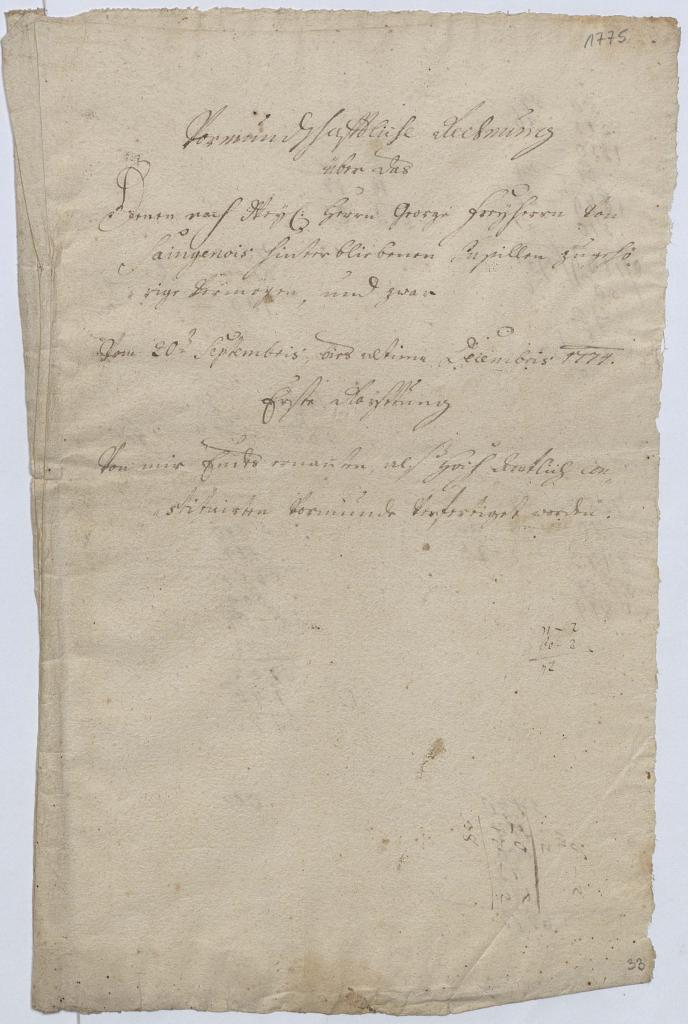 1775
Vormundschaftliche Rechnung
über das
Denen nach Weyl: Herrn George Freyherrn von
Saingenois hinterbliebenen Pupillen zugehö
rige Vermögen, und zwar
Vom 20t Septembris, bis ultima Decembris 1774.
Erste Raythung
Von mir Endes ernannten, als hoch Amtlich con,
stituirten Vormunde Verfertiget worden.
33